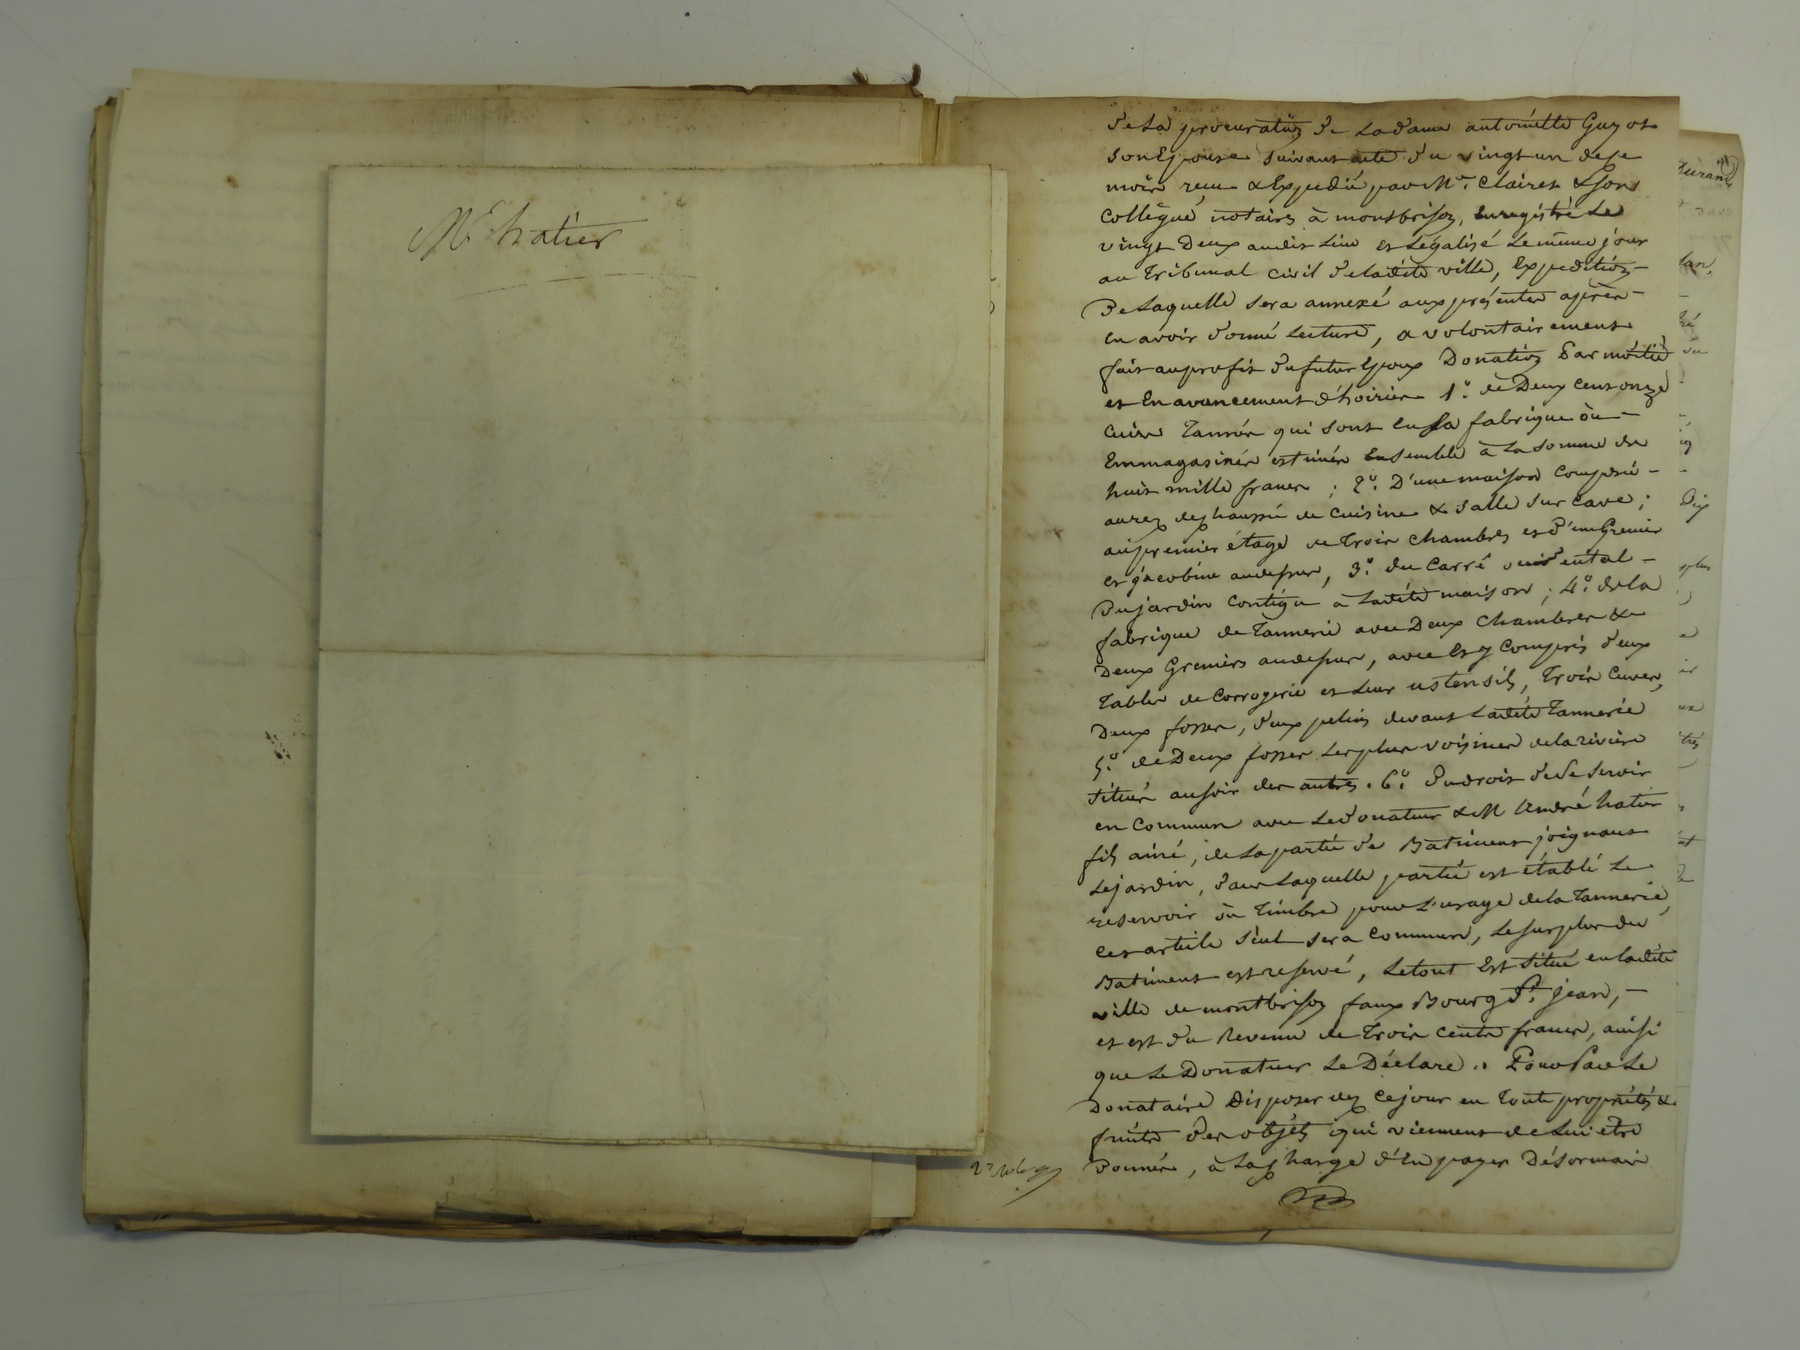 Mr. Chatier
de la procuration de la dame antoinette Guyot
son Epouse suivant acte du vingt un de ce
mois recu & Expedié par Me. Claires & son
Collègue notaires à montbrison, Enregistré Le
vingt Deux audit Lieu et Légalisé Le même jour
au Tribunal civil de ladite ville, Expedition
De Laquelle sera annexé aux présentes après
en avoir donné Lecture, a volontairement
fait au profit du futur Epoux Donation Par moitié
et En avancement d'hoirie 1.º de Deux cent onze
Cuirs Tannés qui sont en sa fabrique où
Emmagasinés estimés Ensemble à La somme de
huit mille francs ; 2.º D'une maison Composée
au rez de chaussée de Cuisine & salle sur Cave ;
au premier étage de Trois chambres et d'un Grenier
et jacobine audessus, 3.º du Carré
Du jardin Contigu à Ladite maison ; 4.º de la
fabrique de Tannerie avec Deux chambres &
Deux Greniers audessus, avec Et y Compris deux
Tables de Corrogerie et Leur ustensils, Trois Cuves,
Deux fosses, deux pelins devant Ladite Tannerie
5.º de Deux fosses Les plus voisines de la rivière
situés au soir des autres. 6.º du droit de se servir
en Commun avec Le donateur & M André hatier
fils ainé, de La partie de Batiment joignant
Le jardin, dans Laquelle partie est établi Le
reservoir où Timbre pour L'usage de la Tannerie,
Cet article seul sera Commun, Le surplus du
Batiment est reservé, Le tout Est situé en Ladite
ville de montbrison faux Bourg St. jean,
et est du Revenu de Trois cents francs, ainsi
que Le Donateur Le Déclare. Pour Par Le
Donataire Disposer dez ce jour en Toute propriétés &
fruits des objets qui viennent de Lui être
Donnés, à La Charge d'En payer Désormais